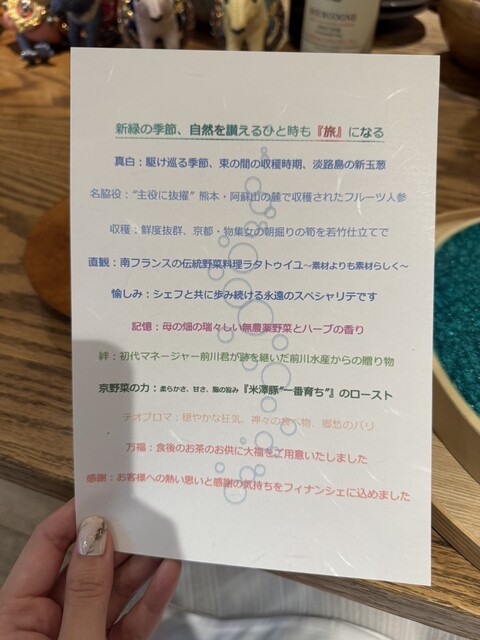 新緑の季節、自然を讃えるひと時も『旅』になる
真白：駆け巡る季節、束の間の収穫時期、淡路島の新玉葱
名脇役：“主役に抜擢” 熊本・阿蘇山の麓で収穫されたフルーツ人参
収穫：鮮度抜群、京都・物集女の朝掘りの筍を若竹仕立てで
直観：南フランスの伝統野菜料理ラタトゥイユ～素材よりも素材らしく～
愉しみ：シェフと共に歩み続ける永遠のスペシャリテです
記憶：母の畑の瑞々しい無農薬野菜とハーブの香り
絆：初代マネージャー前川君が跡を継いだ前川水産からの贈り物
京野菜の力：柔らかさ、甘さ、脂の旨み『米澤豚“一番育ち”』のロースト
テオブロマ：穏やかな狂気、神々の食べ物、郷愁のパリ
万福：食後のお茶のお供に大福をご用意いたしました
感謝：お客様への熱い思いと感謝の気持ちをフィナンシェに込めました